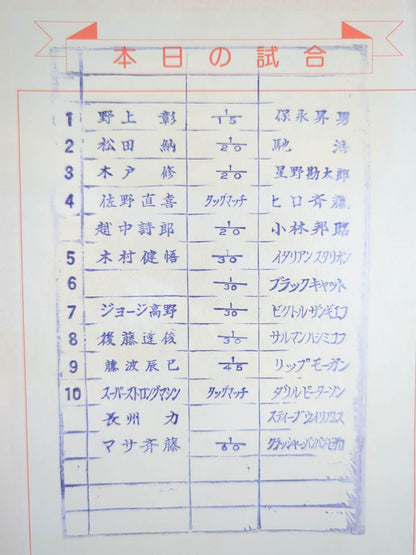 本日の試合
1 野上 彰 1/15 保永昇男
2 松田 納 1/20 馳 浩
3 木戸 修 1/20 星野勘太郎
4 佐野直喜 タッグマッチ ヒロ斉藤
越中詩郎 1/20 小林邦昭
5 木村健悟 1/30 イタリアンスタリオン
6 1/30 ブラックキャット
7 ジョージ高野 1/30 ビクトルザンギエフ
8 後藤達俊 1/30 サルマンハシミコフ
9 藤波辰巳 1/45 リップモーガン
10 スーパーストロングマシン タッグマッチ ダリルピーターソン
長州 力 スティーブウィリアムス
マサ斉藤 1/60 クラッシャーバンバンビガロ